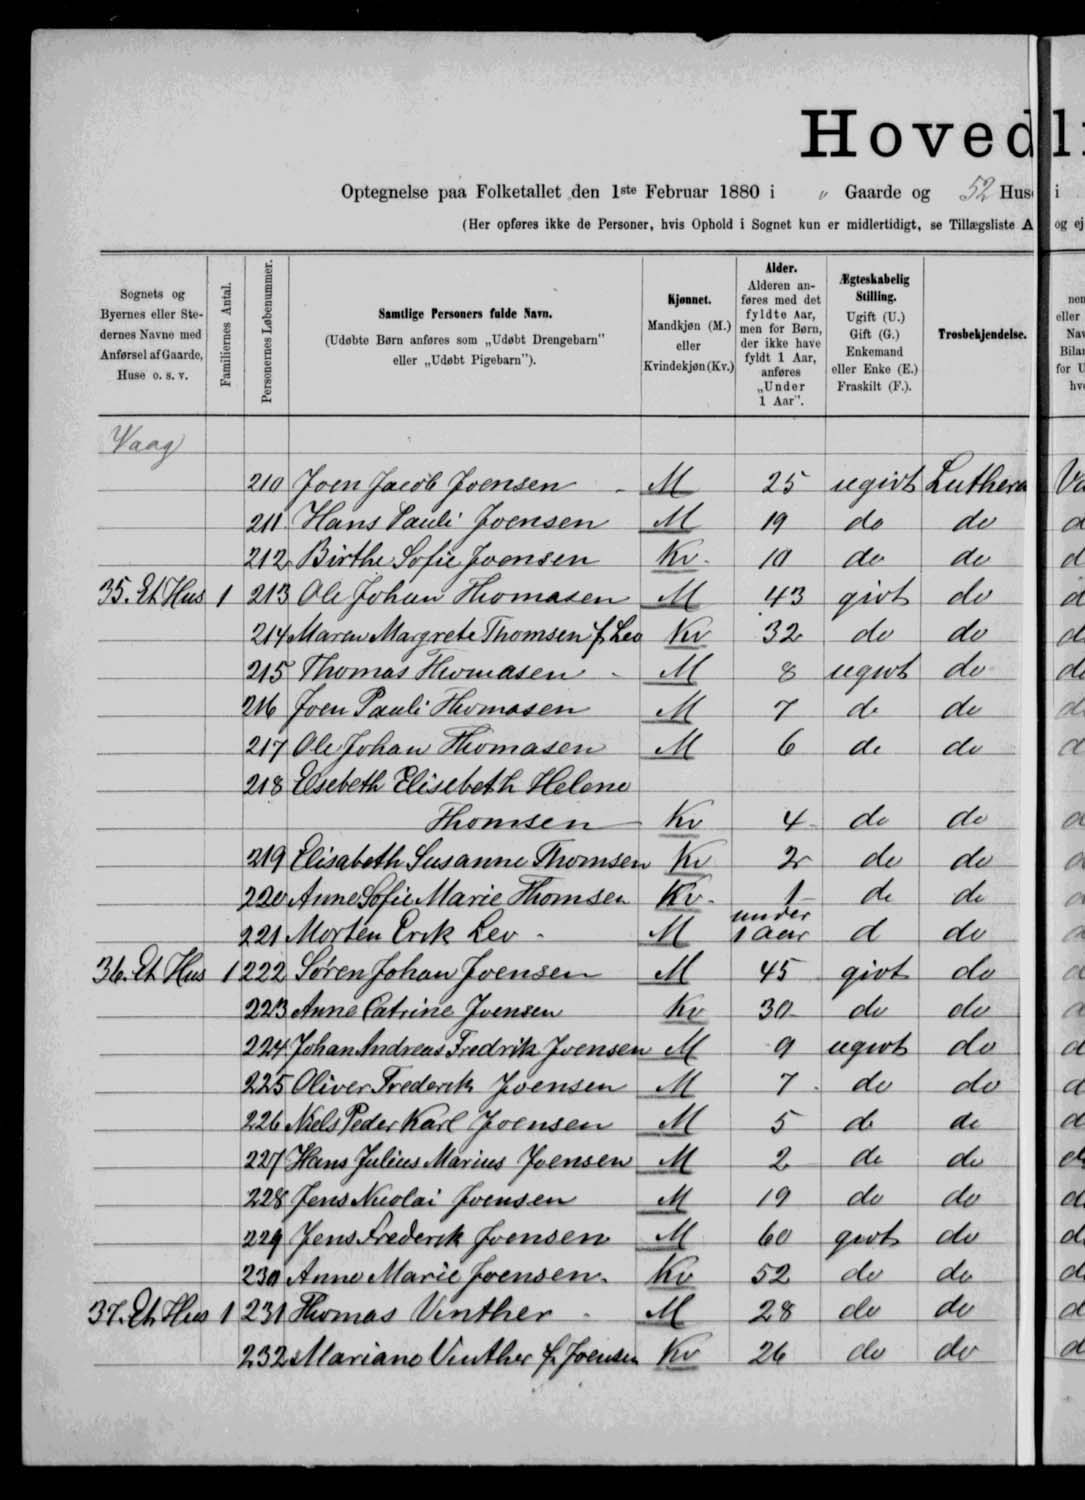 Hovedli
Optegnelse paa Folketallet den 1ste Februar 1880 i " Gaarde og 52 Huse i
(Her opføres ikke de Personer, hvis Ophold i Sognet kun er midlertidigt, se Tillægsliste A og ej
Sognets og Byernes eller Stedernes Navne med Anførsel af Gaarde, Huse o. s. v.
Familiernes Antal.
Personernes Løbenummer.
Samtlige Personers fulde Navn.
(Udøbte Børn anføres som „Udøbt Drengebarn" eller „Udøbt Pigebarn").
Kjønnet.
Mandkjøn (M.) eller Kvindekjøn (Kv.)
Alder.
Alderen anføres med det fyldte Aar, men for Børn, der ikke have fyldt 1 Aar, anføres „Under 1 Aar".
Ægteskabelig Stilling.
Ugift (U.) Gift (G.) Enkemand eller Enke (E.) Fraskilt (F.).
Trosbekjendelse.
Vaag
210 Joen Jacob Joensen M 25 ugivt Luthera
211 Hans Pauli Joensen M 19 do do
212 Birthe Sofie Joensen Kv. 10 do do
35. Et Hus 1 213 Ole Johan Thomasen M 43 givt do
214 Maren Margrete Thomsen f. Leo Kv 32 do do
215 Thomas Thomasen M 8 ugivt do
216 Joen Pauli Thomasen M 7 do do
217 Ole Johan Thomasen M 6 do do
218 Elsebeth Elisebeth Helene
Thomsen Kv 4 do do
219 Elisabeth Susanne Thomsen Kv 2 do do
220 Anne Sofie Marie Thomsen Kv. 1 do do
221 Morten Erik Leo M under 1 aar d do
36. Et Hus 1 222 Søren Johan Joensen M 45 givt do
223 Anne Catrine Joensen Kv 30 do do
224 Johan Andreas Fredrik Joensen M 9 ugivt do
225 Oliver Frederik Joensen M 7 do do
226 Niels Peder Karl Joensen M 5 do do
227 Hans Julius Marius Joensen M 2 do do
228 Jens Nicolai Joensen M 19 do do
229 Jens Frederik Joensen M 60 givt do
230 Anne Marie Joensen. Kv 52 do do
37. Et Hus 1 231 Thomas Vinther M 28 do do
232 Mariane Vinther f. Joensen Kv 26 do do